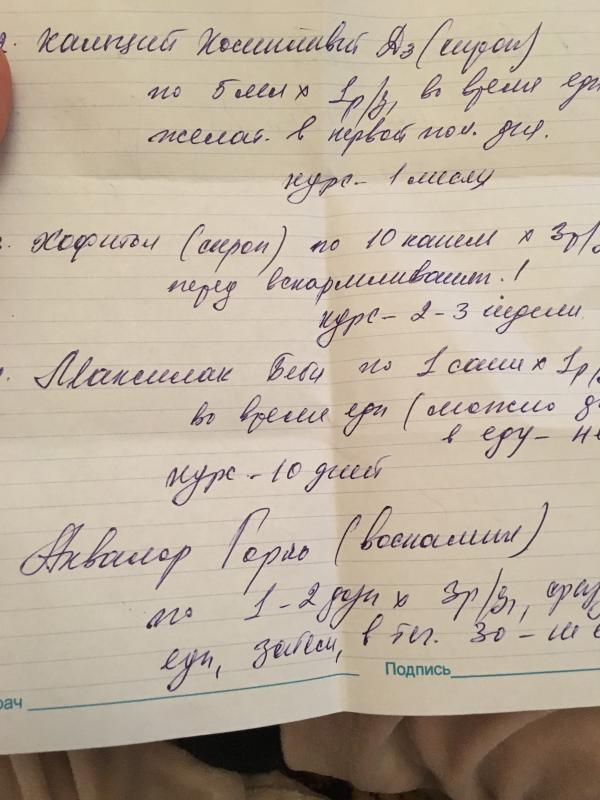 2. Кальций Хомиливый Дз (сироп)
по 5 мл х 1р/д, во время еды
желат. в первой пол. дня.
курс - 1 месяц
Хофитол (сироп) по 10 капель х 3р/д
перед вскармливанием!
курс - 2-3 недели
Максилак Беби по 1 саше х 1р/д
во время еды (можно
в еду - не
курс - 10 дней
Аквалор Горло
по 1-2 дозы х 3р/д, сразу
еды, затем, в теч. 30
рач
Подпись